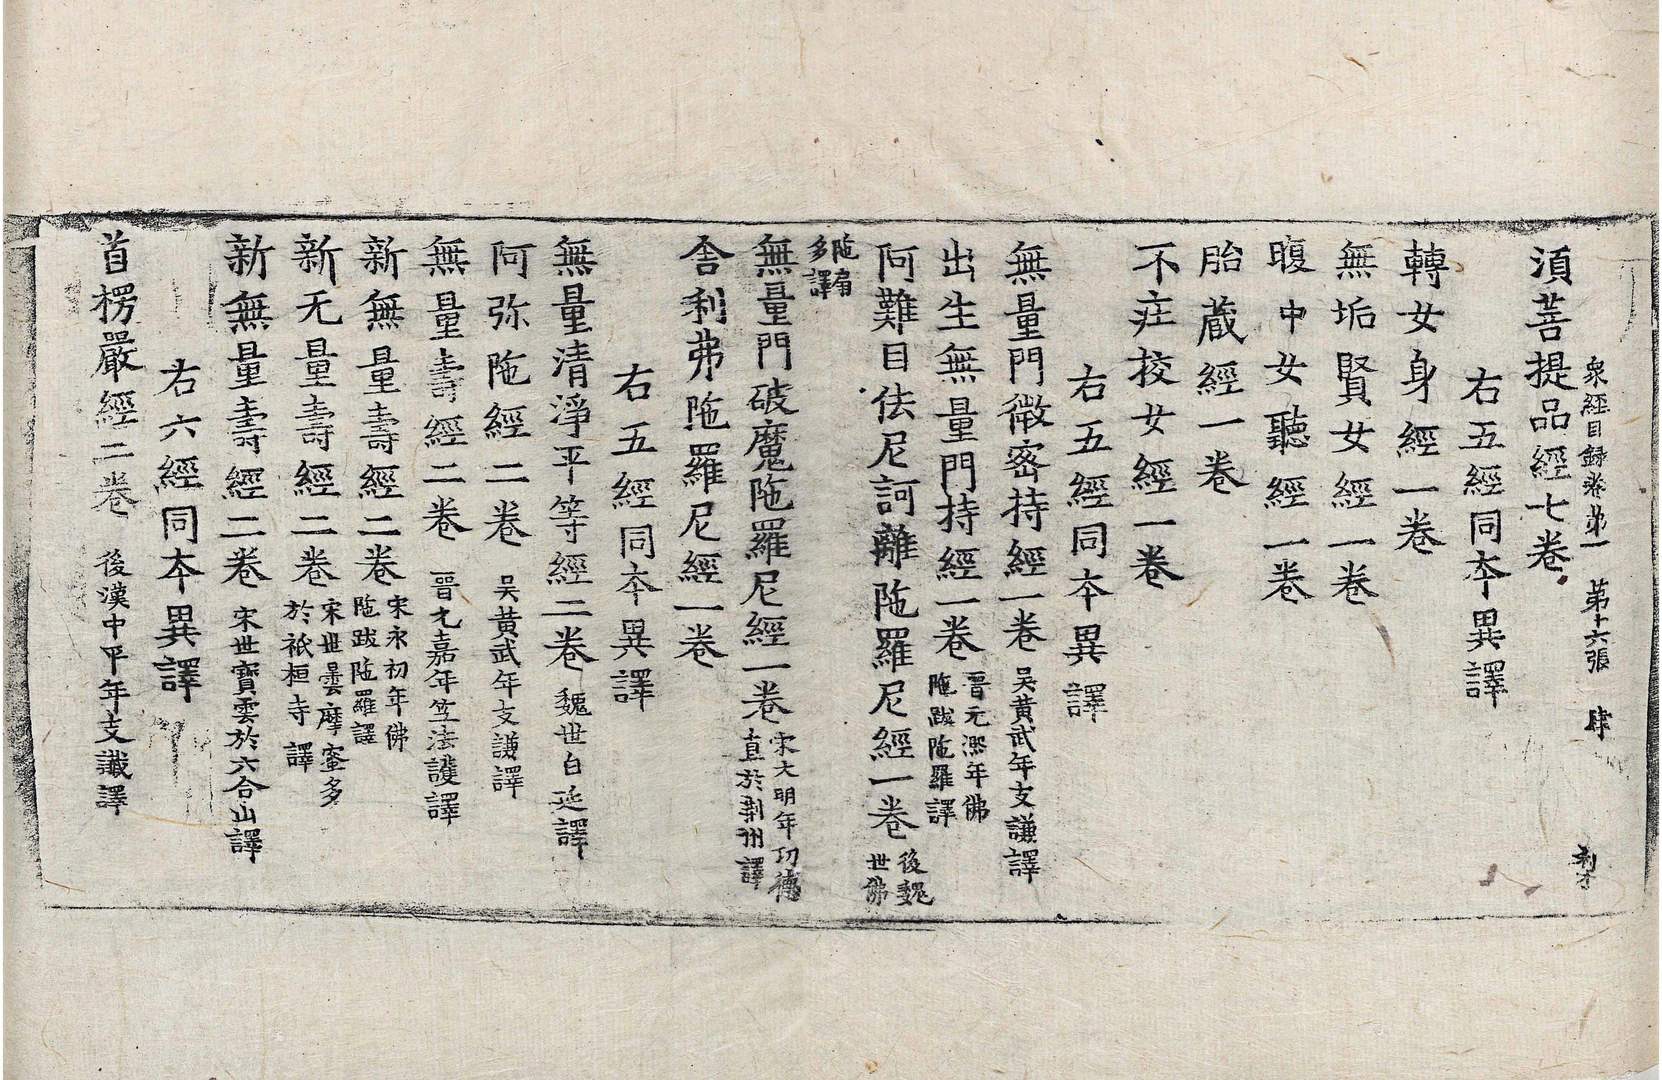 衆經目録卷第一 第十六張 肂
須菩提品經七卷
右五經同本異譯
轉女身經一卷
無垢賢女經一卷
腹中女聽經一卷
胎蔵經一卷
不莊校女經一卷
右五經同本異譯
無量門微密持經一卷 吴黄武年支謙譯
出生無量門持經一卷 晉元熙年佛
陁跋陁羅譯
阿難目佉尼訶離陁羅尼經一卷 後魏
世佛
陁扇
多譯
無量門破魔陁羅尼經一卷 宋大明年功德
直於荆州譯
舎利弗陁羅尼經一卷
右五經同本異譯
無量清淨平等經二卷 魏世白延譯
阿弥陁經二卷 吴黄武年支謙譯
無量壽經二卷 晉元嘉年竺法護譯
新無量壽經二卷 宋永初年佛
陁跋陁羅譯
新无量壽經二卷 宋世曇摩蜜多
於祇桓寺譯
新無量壽經二卷 宋世寶雲於六合山譯
右六經同本異譯
首楞嚴經二卷 後漢中平年支讖譯